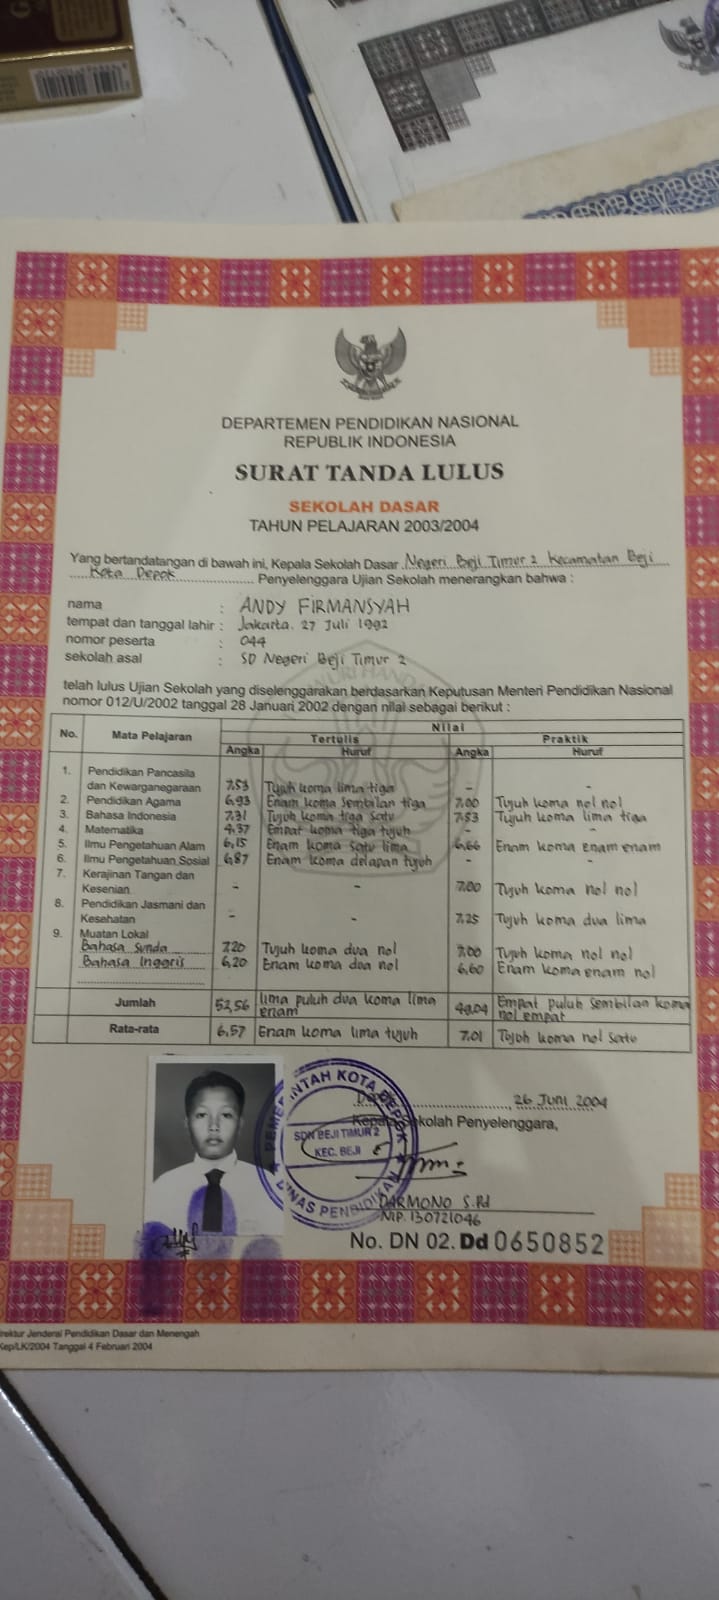 DEPARTEMEN PENDIDIKAN NASIONAL
REPUBLIK INDONESIA
SURAT TANDA LULUS
SEKOLAH DASAR
TAHUN PELAJARAN 2003/2004
Yang bertandatangan di bawah ini, Kepala Sekolah Dasar Negeri Beji Timur 2 Kecamatan Beji
Kota Depok Penyelenggara Ujian Sekolah menerangkan bahwa :
nama : ANDY FIRMANSYAH
tempat dan tanggal lahir : Jakarta. 27 Juli 1992
nomor peserta : 044
sekolah asal : SD Negeri Beji Timur 2
telah lulus Ujian Sekolah yang diselenggarakan berdasarkan Keputusan Menteri Pendidikan Nasional
nomor 012/U/2002 tanggal 28 Januari 2002 dengan nilai sebagai berikut :
No. Mata Pelajaran Nilai
Tertulis Praktik
Angka Huruf Angka Huruf
1. Pendidikan Pancasila
dan Kewarganegaraan 7,53 Tujuh koma lima tiga - -
2. Pendidikan Agama 6,93 Enam koma sembilan tiga 7,00 Tujuh koma nol nol
3. Bahasa Indonesia 7,31 Tujuh koma tiga satu 7,53 Tujuh koma lima tiga
4. Matematika 4,37 Empat koma tiga tujuh - -
5. Ilmu Pengetahuan Alam 6,15 Enam koma satu lima 6,66 Enam koma enam enam
6. Ilmu Pengetahuan Sosial 6,87 Enam koma delapan tujuh - -
7. Kerajinan Tangan dan
Kesenian - - 7,00 Tujuh koma nol nol
8. Pendidikan Jasmani dan
Kesehatan - - 7,25 Tujuh koma dua lima
9. Muatan Lokal
Bahasa Sunda 7,20 Tujuh koma dua nol 7,00 Tujuh koma nol nol
Bahasa Inggris 6,20 Enam koma dua nol 6,60 Enam koma enam nol
Jumlah 52,56 lima puluh dua koma lima enam 49,04 Empat puluh sembilan koma nol empat
Rata-rata 6,57 Enam koma lima tujuh 7,01 Tujuh koma nol satu
Depok, 26 Juni 2004
Kepala Sekolah Penyelenggara,
PEMERINTAH KOTA DEPOK
SDN BEJI TIMUR 2
KEC. BEJI
DINAS PENDIDIKAN
DARMONO S.Pd
NIP. 130721046
No. DN 02. Dd 0650852
Direktur Jenderal Pendidikan Dasar dan Menengah
Kep/LK/2004 Tanggal 4 Februari 2004